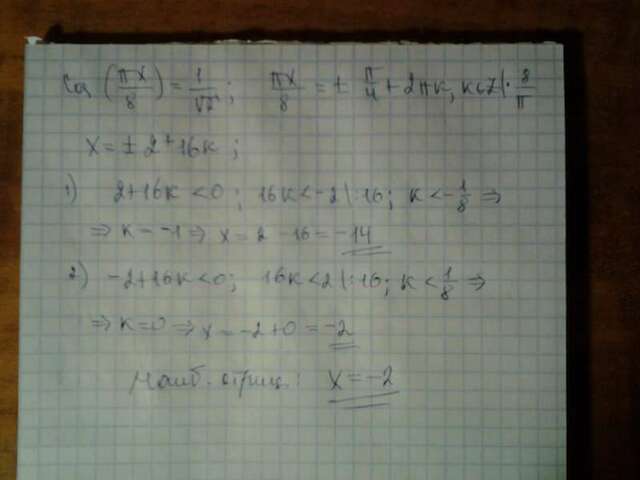 Cos (πx/8) = 1/√2 ; πx/8 = ± π/4 + 2πк, к∈Z |· 8/π
x = ± 2 + 16к ;
1) 2+16к <0 ; 16к < -2 |:16 ; к < -1/8 ⇒
⇒ к = -1 ⇒ x = 2 - 16 = -14
2) -2+16к<0; 16к<2 |:16; к < 1/8 ⇒
⇒ к=0 ⇒ x = -2+0 = -2
Наиб. отриц.: x = -2